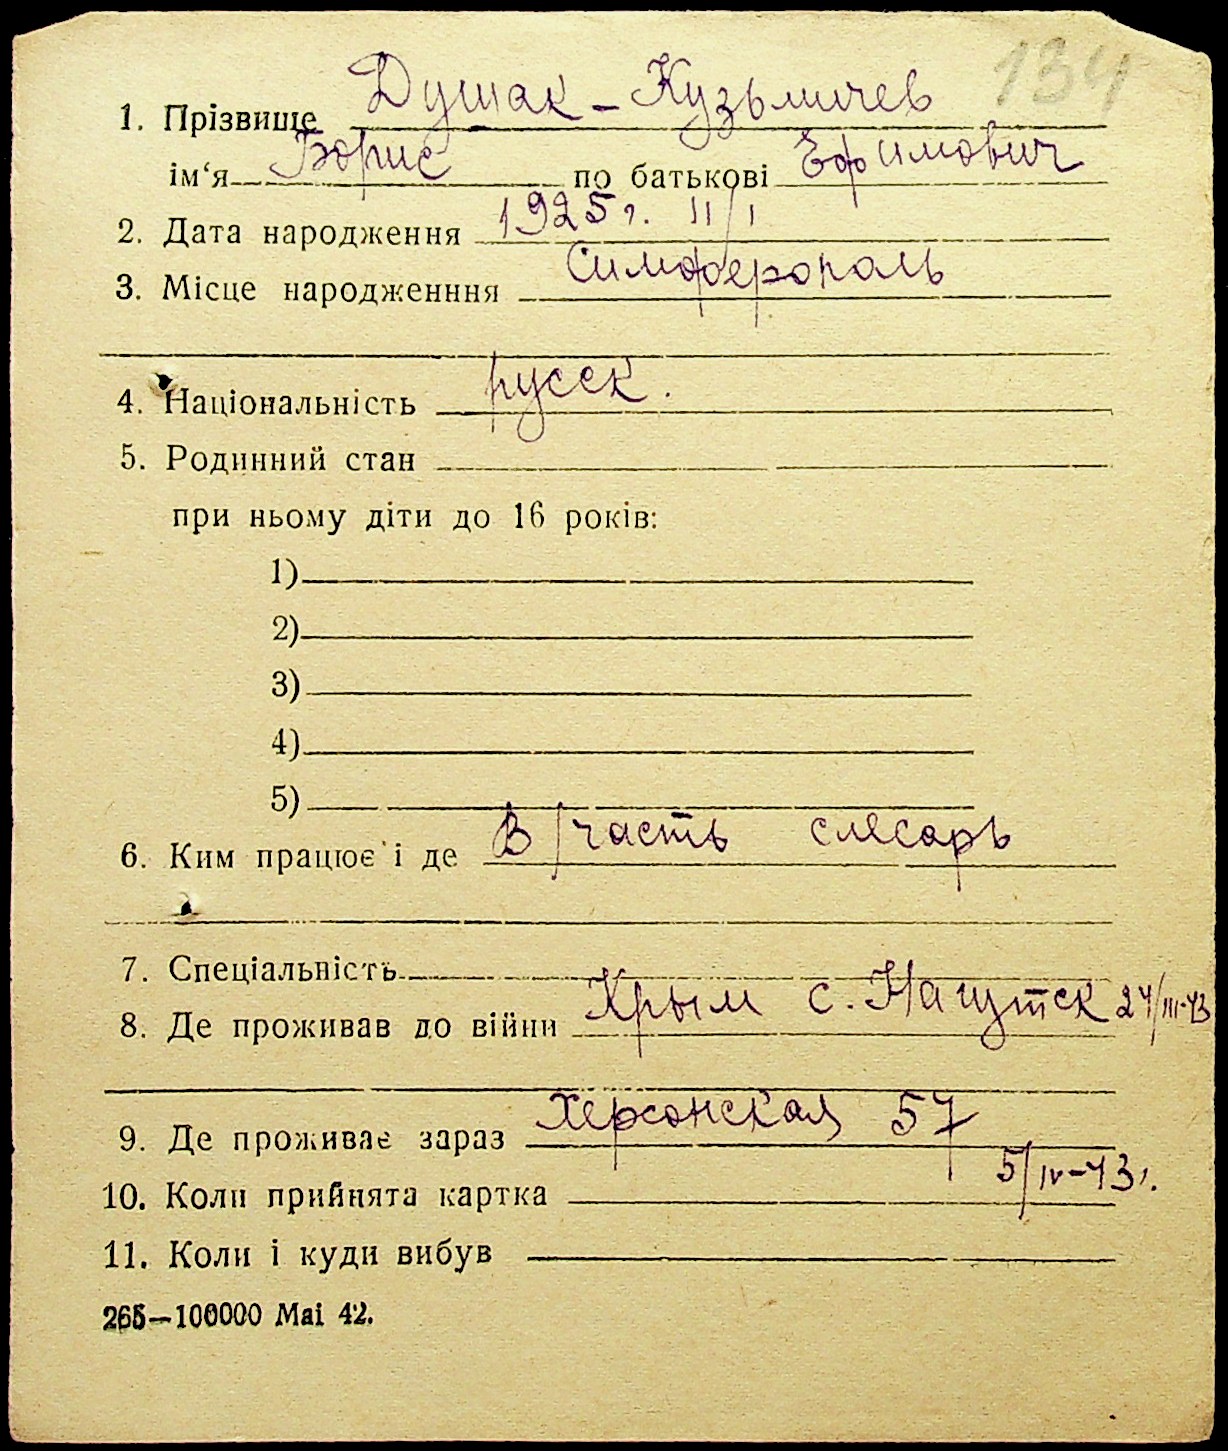 134
1. Прізвище Душак - Кузьмичев
ім‘я Борис по батькові Ефимович
2. Дата народження 1925 г. 11/I
3. Місце народженння Симферополь
4. Національність русск.
5. Родинний стан
при ньому діти до 16 років:
1)
2)
3)
4)
5)
6. Ким працює і де В/часть слесарь
7. Спеціальність
8. Де проживав до війни Крым с. 24/III-43
9. Де проживає зараз Херсонская 57
10. Коли прийнята картка 5/IV-43 г.
11. Коли і куди вибув
265—100000 Mai 42.